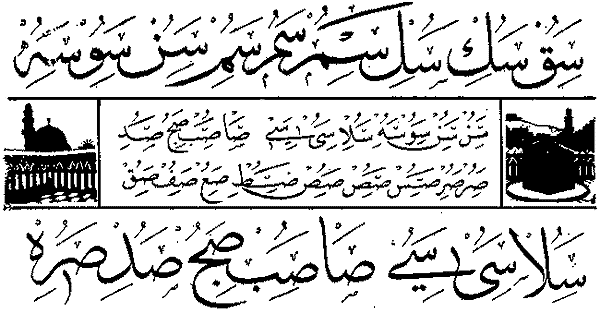 سق سك سل سم سم سم سن سو سه
سن سن سو سه سلا سى سے صا صب صج صد
صر صر صس صص صص صط صع صف صق
سلا سى سے صا صب صج صد صره